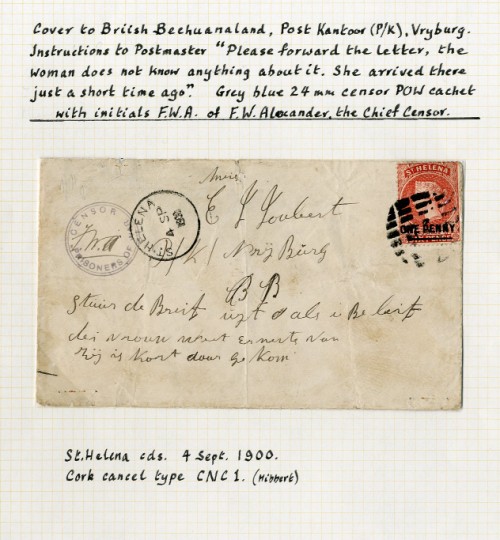 Cover to Briish Bechuanaland, Post Kantoor (P/K), Vryburg.
Instructions to Postmaster "Please forward the letter, the
woman does not know anything about it. She arrived there
just a short time ago". Grey blue 24 mm censor POW cachet
with initials F.W.A. of F.W. Alexander, the Chief Censor.
ST HELENA
ONE PENNY
CENSOR
PRISONERS OF
ST HELENA
SP
4
E J Joubert
P/K/ Vrij Burg
B B
Stuur de Brief als u Be lief
dei vrouw weet er niets van
Zij is Kort daar ge Kom
St.Helena cds. 4 Sept. 1900.
Cork cancel type CNC1. (Hibbert)